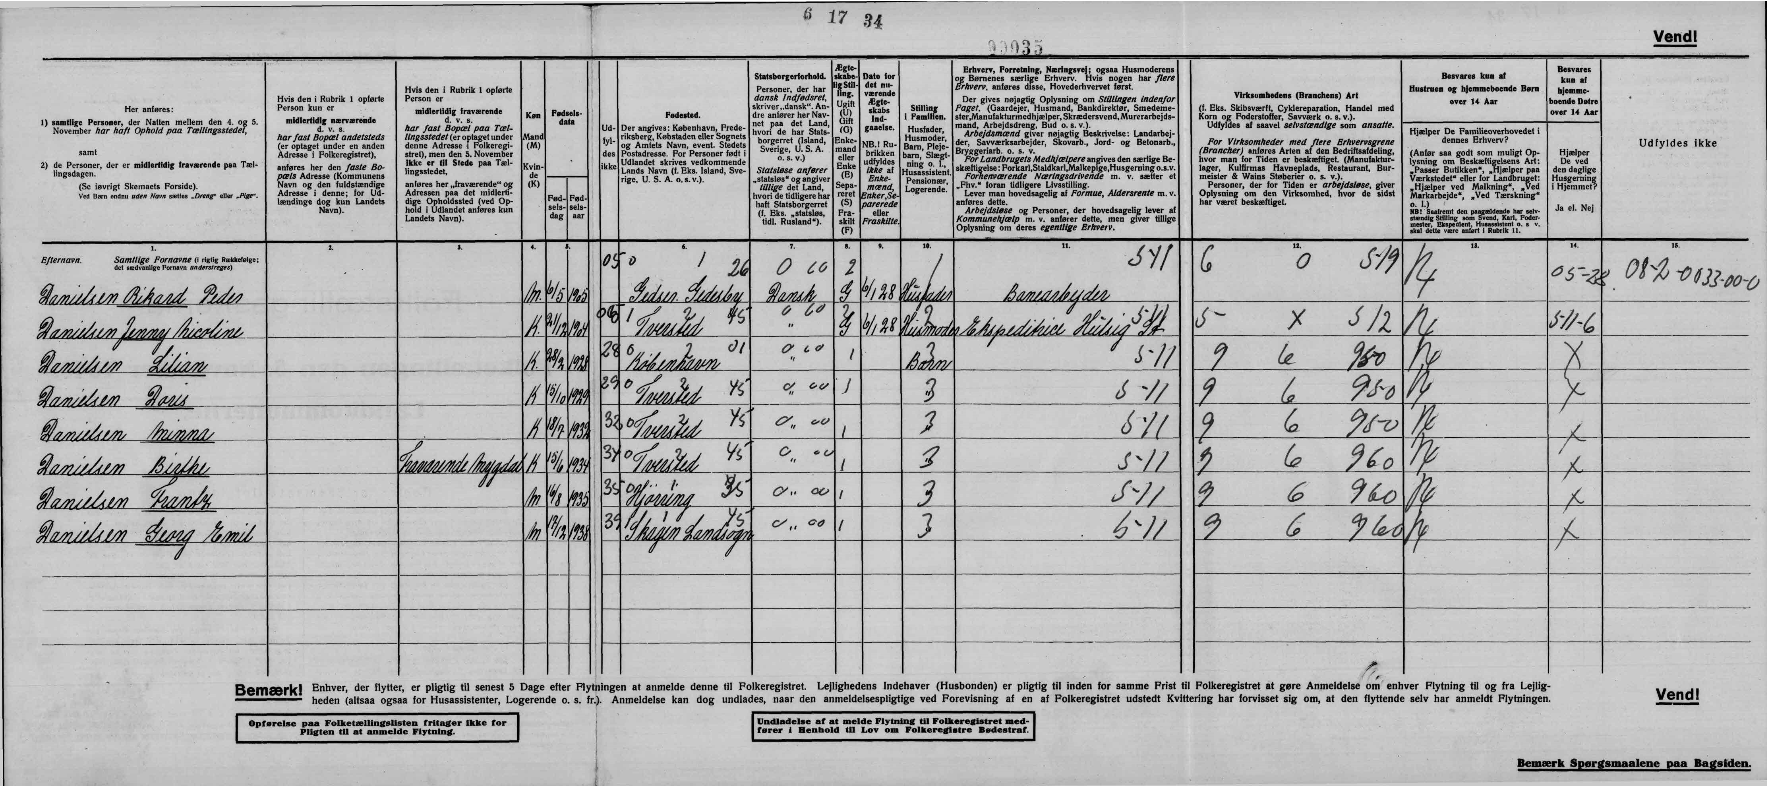 6 17 34
00035
Vend!
Her anføres:
1) samtlige Personer, der Natten mellem den 4. og 5. November har haft Ophold paa Tællingsstedet,
samt
2) de Personer, der er midlertidig fraværende paa Tællingsdagen.
(Se iøvrigt Skemaets Forside).
Ved Børn endnu uden Navn sættes „Dreng" eller „Pige".
Hvis den i Rubrik 1 opførte Person kun er
midlertidig nærværende
d. v. s.
har fast Bopæl andetsteds (er optaget under en anden Adresse i Folkeregistret),
anføres her den faste Bopæls Adresse (Kommunens Navn og den fuldstændige Adresse i denne; for Udlændinge dog kun Landets Navn).
Hvis den i Rubrik 1 opførte Person er
midlertidig fraværende
d. v. s.
har fast Bopæl paa Tællingsstedet (er optaget under denne Adresse i Folkeregistret), men den 5. November ikke er til Stede paa Tællingsstedet,
anføres her „fraværende" og Adressen paa det midlertidige Opholdssted (ved Ophold i Udlandet anføres kun Landets Navn).
Køn
Mand (M)
Kvinde (K)
Fødselsdata
Fødselsdag
Fødselsaar
Udfyldes ikke
Fødested.
Der angives: København, Frederiksberg, Købstaden eller Sognets og Amtets Navn, event. Stedets Postadresse. For Personer født i Udlandet skrives vedkommende Lands Navn (f. Eks. Island, Sverige, U. S. A. o. s. v.).
Statsborgerforhold.
Personer, der har dansk Indfødsret, skriver „dansk". Andre anfører her Navnet paa det Land, hvori de har Statsborgerret (Island, Sverige, U. S. A. o. s. v.)
Statsløse anfører „statsløs" og angiver tillige det Land, hvori de tidligere har haft Statsborgerret (f. Eks. „statsløs, tidl. Rusland").
Ægteskabelig Stilling.
Ugift (U)
Gift (G)
Enkemand eller Enke (E)
Separeret (S)
Fraskilt (F)
Date for det nuværende Ægteskabs Indgaaelse.
NB.! Rubrikken udfyldes ikke af Enkemænd, Enker, Separerede eller Fraskilte.
Stilling i Familien.
Husfader, Husmoder, Barn, Plejebarn, Slægtning o. l., Husassistent, Pensionær, Logerende.
Erhverv, Forretning, Næringsvej; ogsaa Husmoderens og Børnenes særlige Erhverv. Hvis nogen har flere Erhverv, anføres disse, Hovederhvervet først.
Der gives nøjagtig Oplysning om Stillingen indenfor Faget. (Gaardejer, Husmand, Bankdirektør, Smedemester, Manufakturmedhjælper, Skrædersvend, Murerarbejdsmand, Arbejdsdreng, Bud o. s. v.)
Arbejdsmænd giver nøjagtig Beskrivelse: Landarbejder, Savværksarbejder, Skovarb., Jord- og Betonarb., Bryggeriarb. o. s. v.
For Landbrugets Medhjælpere angives den særlige Beskæftigelse: Forkarl, Staldkarl, Malkepige, Husgerning o.s.v.
Forhenværende Næringsdrivende m. v. sætter et „Fhv." foran tidligere Livsstilling.
Lever man hovedsagelig af Formue, Aldersrente m. v. anføres dette.
Arbejdsløse og Personer, der hovedsagelig lever af Kommunehjælp m. v. anfører dette, men giver tillige Oplysning om deres egentlige Erhverv.
Virksomhedens (Branchens) Art
(f. Eks. Skibsværft, Cykelreparation, Handel med Korn og Foderstoffer, Savværk o. s. v.).
Udfyldes af saavel selvstændige som ansatte.
For Virksomheder med flere Erhvervsgrene (Brancher) anføres Arten af den Bedriftsafdeling, hvor man for Tiden er beskæftiget. (Manufakturlager, Kulfirmas Havneplads, Restaurant, Burmeister & Wains Støberier o. s. v.).
Personer, der for Tiden er arbejdsløse, giver Oplysning om den Virksomhed, hvor de sidst har været beskæftiget.
Besvares kun af Hustruen og hjemmeboende Børn over 14 Aar
Hjælper De Familieoverhovedet i dennes Erhverv?
(Anfør saa godt som muligt Oplysning om Beskæftigelsens Art: „Passer Butikken", „Hjælper paa Værkstedet" eller for Landbruget: „Hjælper ved Malkning", „Ved Markarbejde", „Ved Tærskning" o. l.)
NB! Saafremt den paagældende har selvstændig Stilling som Svend, Karl, Fodermester, Ekspedient, Husassistent o. s. v. skal dette være anført i Rubrik 11.
Besvares kun af hjemmeboende Døtre over 14 Aar
Hjælper De ved den daglige Husgerning i Hjemmet?
Ja el. Nej
Udfyldes ikke
1. 2. 3. 4. 5. 6. 7. 8. 9. 10. 11. 12. 13. 14. 15.
Efternavn. Samtlige Fornavne (i rigtig Rækkefølge; det sædvanlige Fornavn understreges)
05 0 1 26 0 00 2 1 5-11 6 0 519 05-28 08-2-0033-00-0
Danielsen Rikard Peder M. 6/5 1905 Gedser. Gedesby Dansk G 6/1 28 Husfader Banearbejder
Danielsen Jenny Nicoline K. 21/12 1904 Tversted 45 " G 6/1 28 Husmoder Ekspeditrice Hulsig St 5 x 512 511-6
Danielsen Lilian K. 28/2 1928 28 0 København 01 0 " 00 1 Børn 3 5-11 9 6 950 x
Danielsen Doris K 15/10 1929 29 0 Tversted 45 0 " 00 1 3 5-11 9 6 950 x
Danielsen Minna K 18/7 1932 32 0 Tversted 45 0 " 00 1 3 5-11 9 6 950 x
Danielsen Birthe Fraværende Mygdal K 15/6 1934 34 0 Tversted 45 0 " 00 1 3 5-11 9 6 960 x
Danielsen Frantz M 16/8 1935 35 0 Hjørring 35 0 " 00 1 3 5-11 9 6 960 x
Danielsen Georg Emil M 17/12 1938 39 1 Skagen Landsogn 45 0 " 00 1 3 5-11 9 6 960 x
Bemærk! Enhver, der flytter, er pligtig til senest 5 Dage efter Flytningen at anmelde denne til Folkeregistret. Lejlighedens Indehaver (Husbonden) er pligtig til inden for samme Frist til Folkeregistret at gøre Anmeldelse om enhver Flytning til og fra Lejlig-
heden (altsaa ogsaa for Husassistenter, Logerende o. s. fr.). Anmeldelse kan dog undlades, naar den anmeldelsespligtige ved Forevisning af en af Folkeregistret udstedt Kvittering har forvisset sig om, at den flyttende selv har anmeldt Flytningen.
Vend!
Opførelse paa Folketællingslisten fritager ikke for
Pligten til at anmelde Flytning.
Undladelse af at melde Flytning til Folkeregistret med-
fører i Henhold til Lov om Folkeregistre Bødestraf.
Bemærk Spørgsmaalene paa Bagsiden.